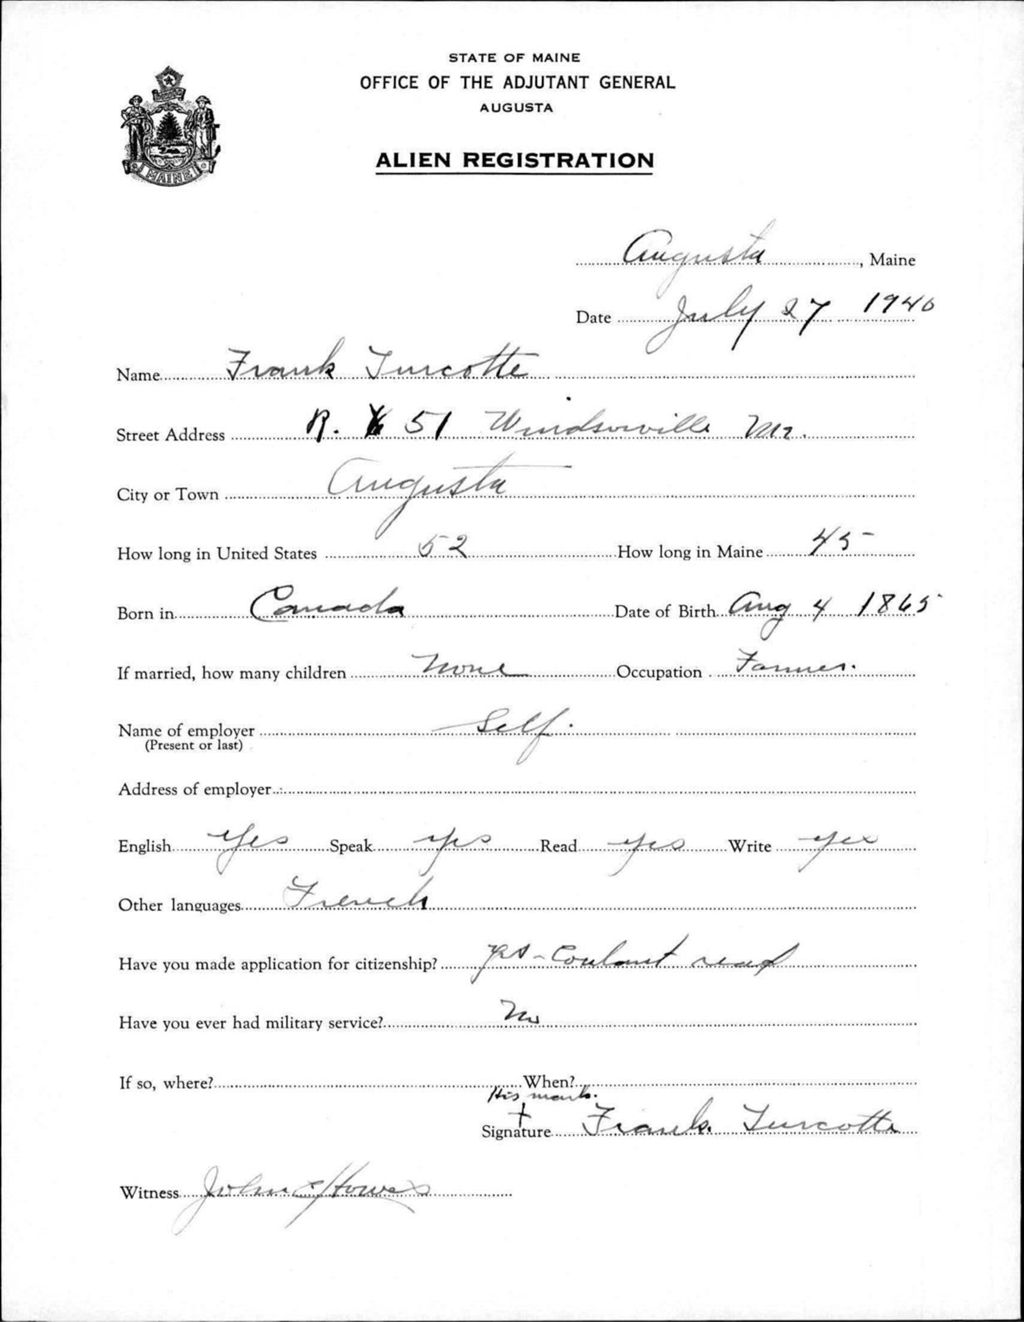 STATE OF MAINE
OFFICE OF THE ADJUTANT GENERAL
AUGUSTA
ALIEN REGISTRATION
MAINE
Augusta, Maine
Date July 27 1940
Name Frank Turcotte
Street Address R. 51 Windsorville Me.
City or Town Augusta
How long in United States 52 How long in Maine 45
Born in Canada Date of Birth Aug 4 1865
If married, how many children None Occupation Farmer.
Name of employer Self.
(Present or last)
Address of employer
English Yes Speak yes Read yes Write yes
Other languages French
Have you made application for citizenship? yes - Couldnt read
Have you ever had military service? No
If so, where? When?
His mark.
Signature Frank Turcotte
Witness John E Howes